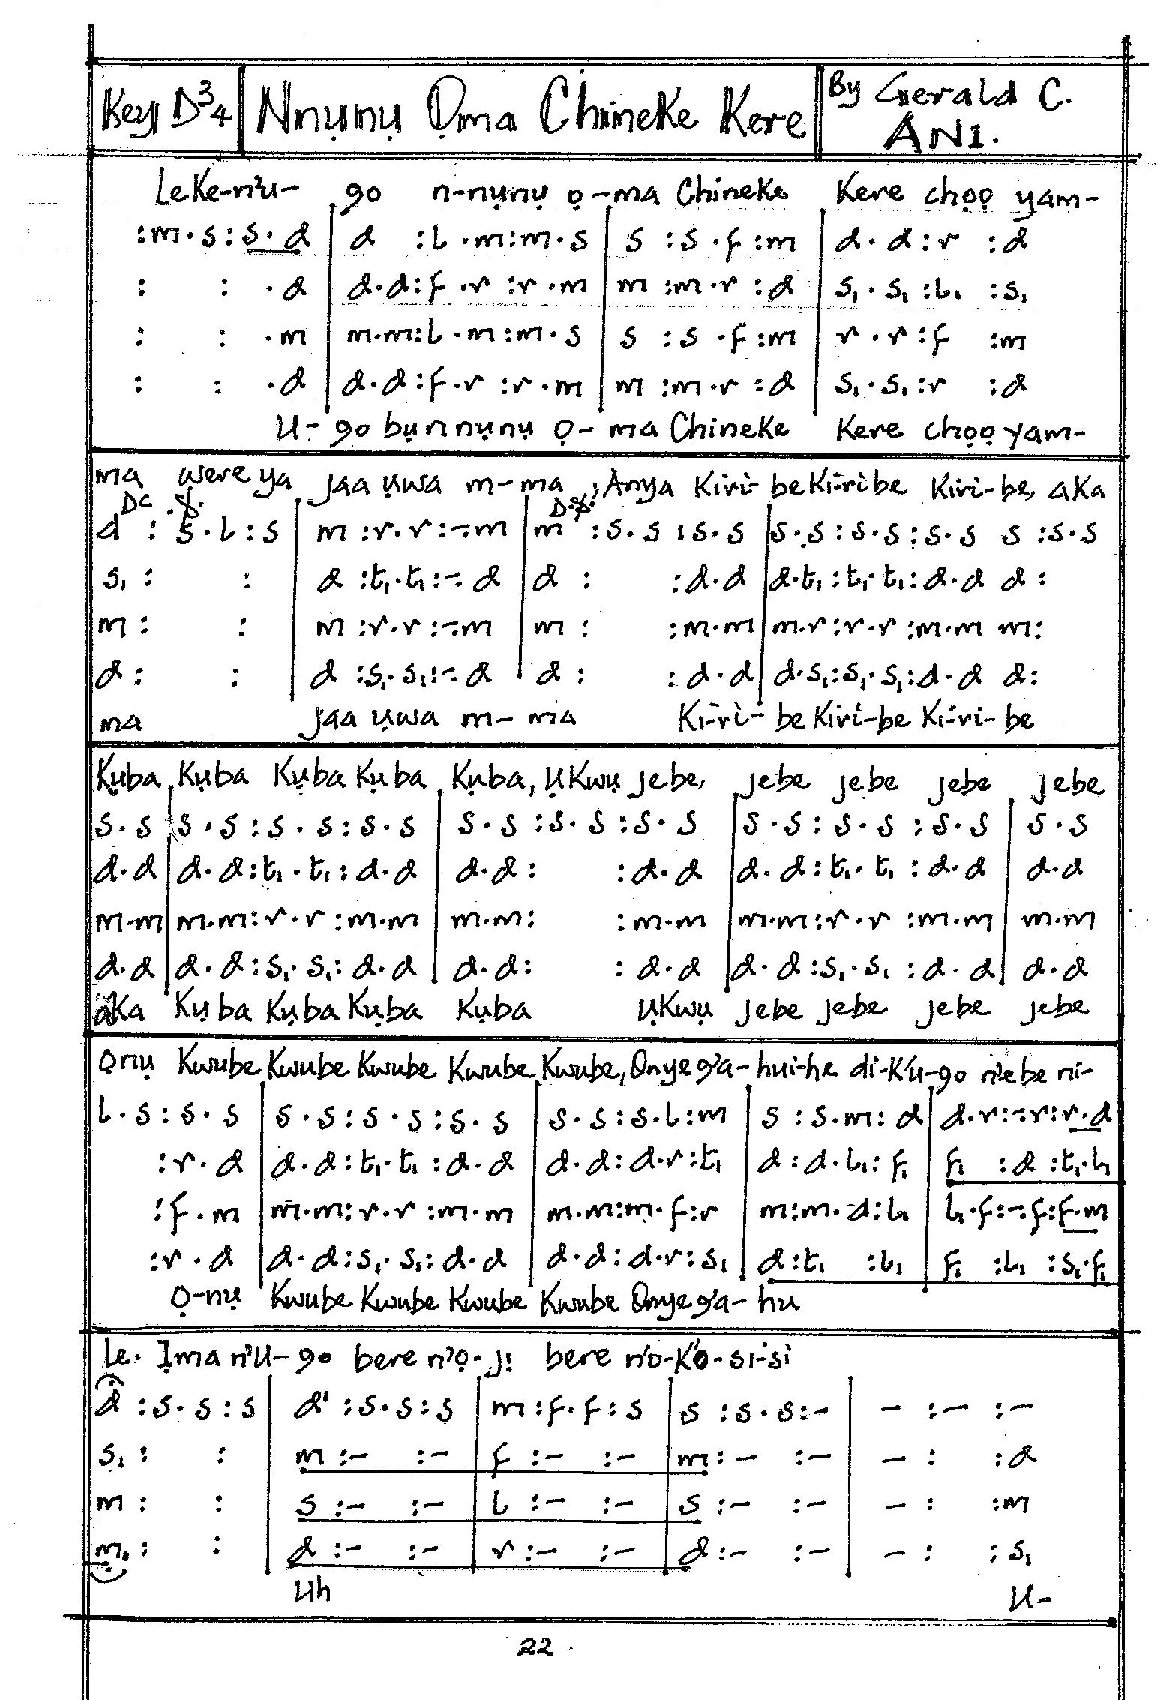 Key D 3/4 Nnụnụ Ọma Chineke Kere By Gerald C. ANI.
Leke-n'u- go n-nụnụ ọ-ma Chineke Kere chọọ yam-
:m.s:s.d | d :l.m:m.s | s :s.f:m | d.d:r :d
: : .d | d.d:f.r:r.m | m:m.r:d | s₁.s₁:l₁ :s₁
: : .m | m.m:l.m:m.s | s :s.f:m | r.r:f :m
: : .d | d.d:f.r:r.m | m:m.r:d | s₁.s₁:r :d
U-go bụ n nụnụ ọ-ma Chineke Kere chọọ yam-
ma were ya jaa ụwa m-ma, Anya Kiri-be Ki-ribe Kiri-be, aka
DC .S. D.S.
d : s.l:s | m :r.r:-.m | m :s.s:s.s | s.s:s.s:s.s s:s.s
s₁: : | d :t₁.t₁:-.d | d : :d.d | d.t₁:t₁.t₁:d.d d:
m: : | m:r.r:-.m | m: :m.m | m.r:r.r:m.m m:
d: : | d :s₁.s₁:-.d | d: :d.d | d.s₁:s₁.s₁:d.d d:
ma jaa ụwa m-ma Ki-ri-be Kiri-be Ki-ri-be
Kụba Kụba Kụba Kụba Kụba, ụkwụ jebe, jebe jebe jebe jebe
s.s | s.s:s.s:s.s | s.s:s.s:s.s | s.s:s.s:s.s | s.s
d.d | d.d:t₁.t₁:d.d | d.d: :d.d | d.d:t₁.t₁:d.d | d.d
m.m | m.m:r.r:m.m | m.m: :m.m | m.m:r.r:m.m | m.m
d.d | d.d:s₁.s₁:d.d | d.d: :d.d | d.d:s₁.s₁:d.d | d.d
aka Kụba Kụba Kụba Kụba Ụkwụ jebe jebe jebe jebe
Ọnụ Kwube Kwube Kwube Kwube Kwube, Onye g'a-hui-he di-k'u-go n'ebe ni-
l.s:s.s | s.s:s.s:s.s | s.s:s.l:m | s:s.m:d | d.r:-.r:r.d
:r.d | d.d:t₁.t₁:d.d | d.d:d.r:t₁ | d:d.l₁:f₁ | f₁ :d:t₁.l₁
:f.m | m.m:r.r:m.m | m.m:m.f:r | m:m.d:l₁ | l₁.f:-.f:f.m
:r.d | d.d:s₁.s₁:d.d | d.d:d.r:s₁ | d:t₁ :l₁ | f₁ :l₁ :s₁.f₁
Ọ-nụ Kwube Kwube Kwube Kwube Onye g'a-hu
le. Ịma n'U-go bere n'ọ-jị bere n'o-k'o-si-si
d:s.s:s | d' :s.s:s | m:f.f:s | s:s.s:- | - :- :-
s₁: : | m:- :- | f:- :- | m:- :- | - : :d
m: : | s:- :- | l:- :- | s:- :- | - : :m
m₁: : | d:- :- | r:- :- | d:- :- | - : :s₁
Uh U-
22